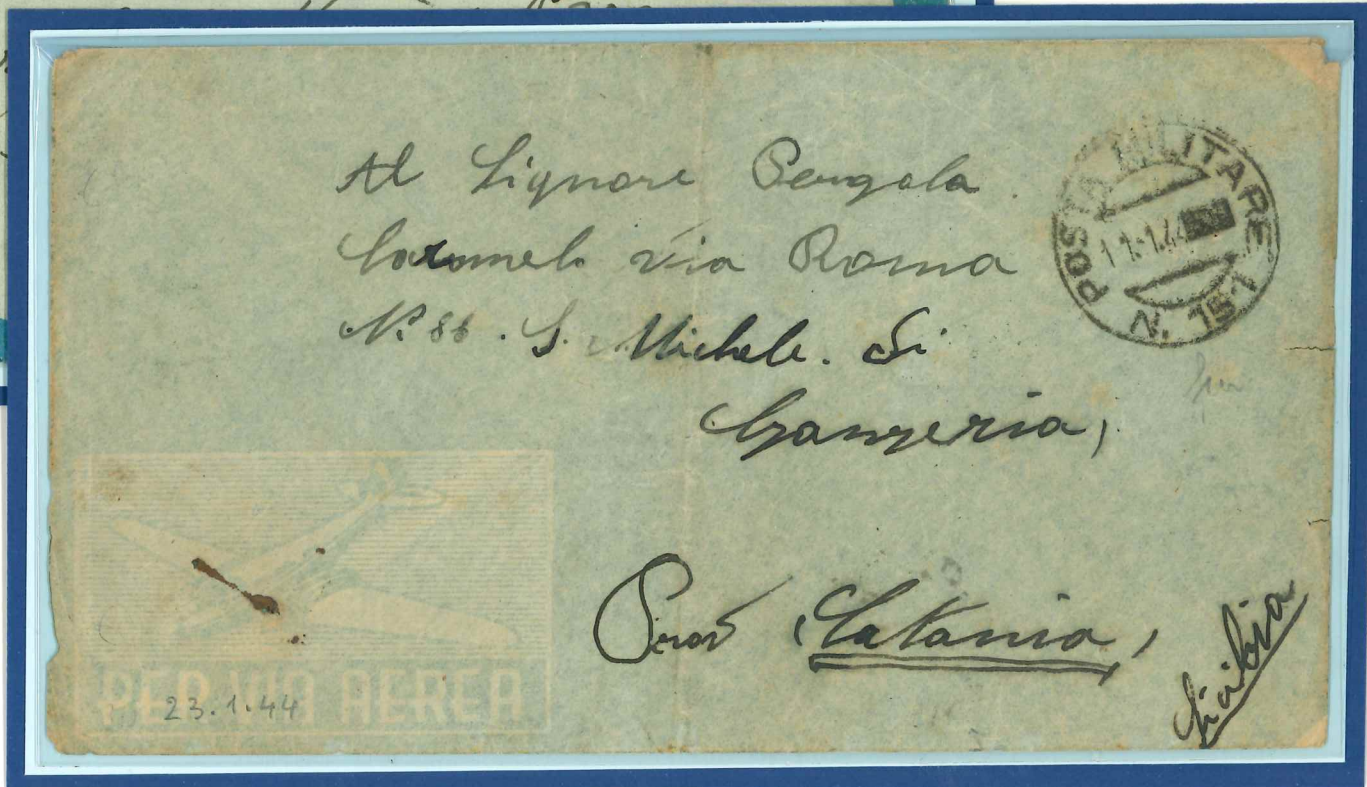 Al Signore Pergola
Carmelo via Roma
N° 86. S. Michele. di
Ganzeria,
Prov Catania,
Sicilia
POSTA MILITARE
N. 151
PER VIA AEREA
23.1.44